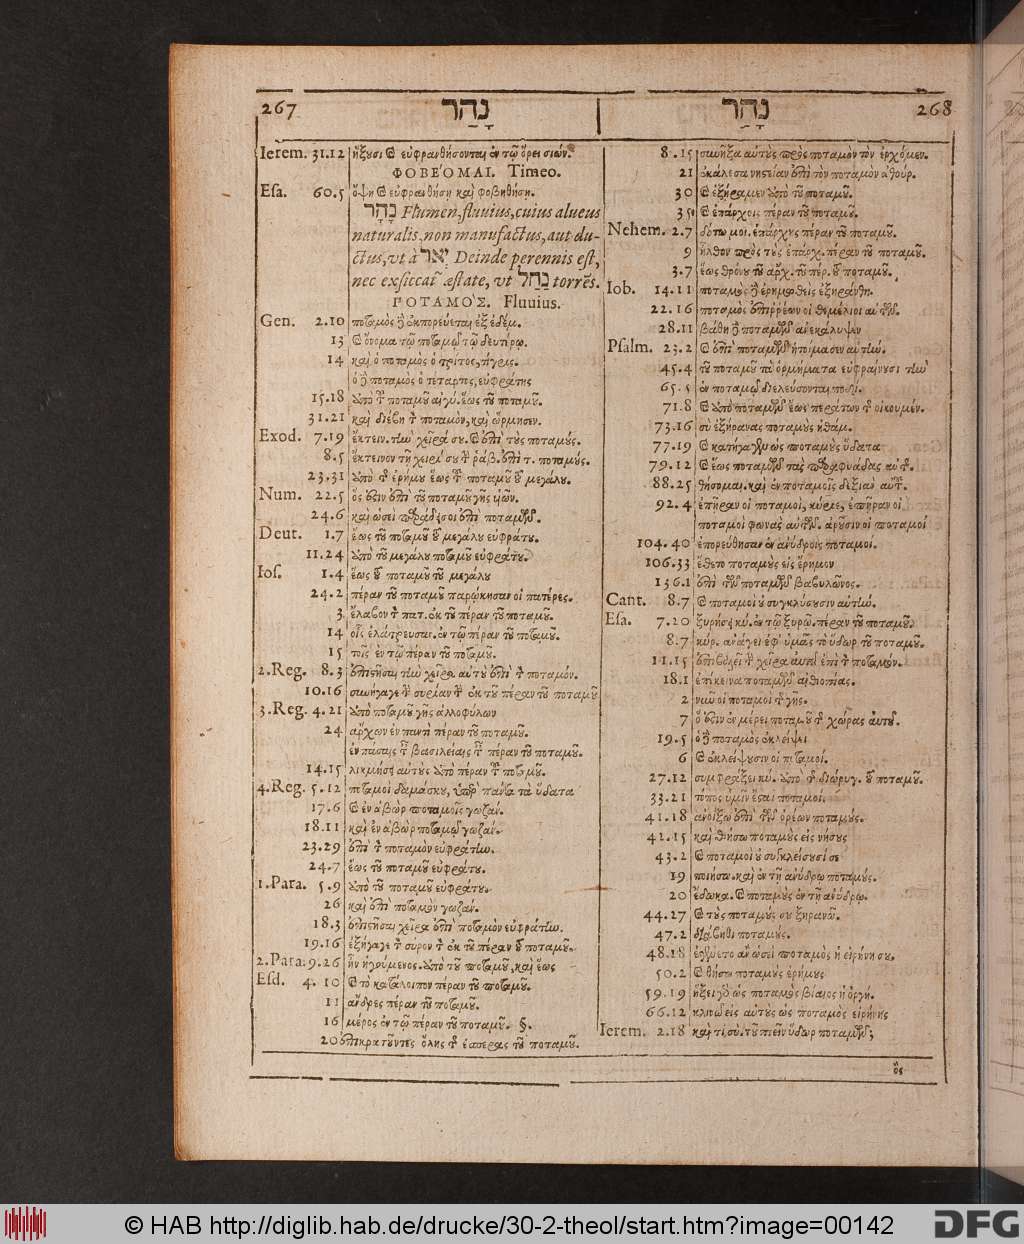 267 נָהַר נָהַר 268
Ierem. 31.12 ἥξουσι καὶ εὐφρανθήσονται ἐν τῷ ὄρει σιών.
ΦΟΒΕ'ΟΜΑΙ. Timeo.
Esa. 60.5 ὄψῃ καὶ εὐφρανθήσῃ καὶ φοβηθήσῃ.
נָהָר Flumen, fluuius, cuius alueus
naturalis, non manufactus, aut du-
ctus, vt à יְאֹר Deinde perennis est,
nec exsiccat̃ æstate, vt נַחַל torrẽs.
ΠΟΤΑΜΟ'Σ. Fluuius.
Gen. 2.10 ποταμὸς δὲ ἐκπορεύεται ἐξ ἐδέμ.
13 καὶ ὄνομα τῷ ποταμῷ τῷ δευτέρῳ.
14 καὶ ὁ ποταμὸς ὁ τρίτος, τίγρις.
ὁ δὲ ποταμὸς ὁ τέταρτος, εὐφράτης
15.18 ἀπὸ τοῦ ποταμοῦ αἰγύ. ἕως τοῦ ποταμοῦ.
31.21 καὶ διέβη τὸν ποταμὸν, καὶ ὥρμησεν.
Exod. 7.19 ἔκτειν. τὴν χεῖρά σου. καὶ ἐπὶ τοὺς ποταμούς.
8.5 ἔκτεινον τῇ χειρί σου τὴν ῥάβ. ἐπὶ τ. ποταμούς.
23.31 ἀπὸ τῆς ἐρήμου ἕως τοῦ ποταμοῦ τοῦ μεγάλου.
Num. 22.5 ὅς ἐστιν ἐπὶ τοῦ ποταμοῦ γῆς υἱῶν.
24.6 καὶ ὡσεὶ παράδεισοι ἐπὶ ποταμῶν.
Deut. 1.7 ἕως τοῦ ποταμοῦ τοῦ μεγάλου εὐφράτου.
11.24 ἀπὸ τοῦ μεγάλου ποταμοῦ εὐφράτου.
Ios. 1.4 ἕως τοῦ ποταμοῦ τοῦ μεγάλου
24.2 πέραν τοῦ ποταμοῦ παρῴκησαν οἱ πατέρες.
3 ἔλαβον τὸν πατ. ἐκ τοῦ πέραν τοῦ ποταμοῦ.
14 οἷς ἐλάτρευσαν. ἐν τῷ πέραν τοῦ ποταμοῦ.
15 τοῖς ἐν τῷ πέραν τοῦ ποταμοῦ.
2.Reg. 8.3 ἐπιστῆσαι τὴν χεῖρα αὐτοῦ ἐπὶ τὸν ποταμόν.
10.16 συνήγαγε τὴν συρίαν τὴν ἐκ τοῦ πέραν τοῦ ποταμοῦ
3.Reg. 4.21 ἀπὸ ποταμοῦ γῆς ἀλλοφύλων
24 ἄρχων ἐν παντὶ πέραν τοῦ ποταμοῦ.
ἐν πάσαις ταῖς βασιλείαις ταῖς πέραν τοῦ ποταμοῦ.
14.15 λικμήσει αὐτοὺς ἀπὸ πέραν τοῦ ποταμοῦ.
4.Reg. 5.12 ποταμοὶ δαμάσκου, ὑπὲρ πάντα τὰ ὕδατα
17.6 καὶ ἐν ἀβὼρ ποταμοῖς γωζάν.
18.11 καὶ ἐν ἀβὼρ ποταμῷ γωζάν.
23.29 ἐπὶ τὸν ποταμὸν εὐφράτην.
24.7 ἕως τοῦ ποταμοῦ εὐφράτου.
1.Para. 5.9 ἀπὸ τοῦ ποταμοῦ εὐφράτου.
26 καὶ ἐπὶ ποταμὸν γωζάν.
18.3 ἐπιστῆσαι χεῖρα ἐπὶ ποταμὸν εὐφράτην.
19.16 ἐξήγαγε τὸν σύρον τὸν ἐκ τοῦ πέραν τοῦ ποταμοῦ.
2.Para. 9.26 ἦν ἡγούμενος. ἀπὸ τοῦ ποταμοῦ, καὶ ἕως
Esd. 4.10 καὶ τὸ κατάλοιπον πέραν τοῦ ποταμοῦ.
11 ἄνδρες πέραν τοῦ ποταμοῦ.
16 μέρος ἐν τῷ πέραν τοῦ ποταμοῦ. §.
20 ἐπικρατοῦντες ὅλης τῆς ἑσπέρας τοῦ ποταμοῦ.
8.15 συνῆξα αὐτοὺς πρὸς ποταμὸν τὸν ἐρχόμεν.
21 ἐκάλεσα νηστείαν ἐπὶ τὸν ποταμὸν ἀθούρ.
30 καὶ ἐξήραμεν ἀπὸ τοῦ ποταμοῦ.
35 καὶ ἐπάρχοις πέραν τοῦ ποταμοῦ.
Nehem. 2.7 δότω μοι. ἐπάρχους πέραν τοῦ ποταμοῦ.
9 ἦλθον πρὸς τοὺς ἐπάρχ. πέραν τοῦ ποταμοῦ.
3.7 ἕως θρόνου τοῦ ἄρχ. τοῦ πέρ. τοῦ ποταμοῦ.
Iob. 14.11 ποταμὸς δὲ ἐρημωθεὶς ἐξηράνθη.
22.16 ποταμὸς ἐπιῤῥέων οἱ θεμέλιοι αὐτῶν.
28.11 βάθη δὲ ποταμῶν ἀνεκάλυψεν
Psalm. 23.2 καὶ ἐπὶ ποταμῶν ἡτοίμασεν αὐτήν.
45.4 τοῦ ποταμοῦ τὰ ὁρμήματα εὐφραίνουσι τὴν
65.5 ἐν ποταμῷ διελεύσονται ποδί.
71.8 καὶ ἀπὸ ποταμῶν ἕως περάτων τῆς οἰκουμέν.
73.16 σὺ ἐξήρανας ποταμοὺς ἠθάμ.
77.19 καὶ κατήγαγεν ὡς ποταμοὺς ὕδατα
79.12 καὶ ἕως ποταμῶν τὰς παραφυάδας αὐτῆς.
88.25 θήσομαι. καὶ ἐν ποταμοῖς δεξιὰν αὐτοῦ.
92.4 ἐπῆραν οἱ ποταμοὶ, κύριε, ἐπῆραν οἱ
ποταμοὶ φωνὰς αὐτῶν. ἀροῦσιν οἱ ποταμοὶ
104.40 ἐπορεύθησαν ἐν ἀνύδροις ποταμοί.
106.33 ἔθετο ποταμοὺς εἰς ἔρημον
136.1 ἐπὶ τῶν ποταμῶν βαβυλῶνος.
Cant. 8.7 καὶ ποταμοὶ οὐ συγκλύσουσιν αὐτήν.
Esa. 7.20 ξυρήσει κύ. ἐν τῷ ξυρῷ. πέραν τοῦ ποταμοῦ.
8.7 κύρ. ἀνάγει ἐφ' ὑμᾶς τὸ ὕδωρ τοῦ ποταμοῦ.
11.15 ἐπιβαλεῖ τὴν χεῖρα αὐτοῦ ἐπὶ τὸν ποταμόν.
18.1 ἐπέκεινα ποταμῶν αἰθιοπίας.
2 νῦν οἱ ποταμοὶ τῆς γῆς.
7 ὅ ἐστιν ἐν μέρει ποταμοῦ τῆς χώρας αὐτοῦ.
19.5 ὁ δὲ ποταμὸς ἐκλείψει
6 καὶ ἐκλείψουσιν οἱ ποταμοί.
27.12 συμφράξει κύ. ἀπὸ τῆς διώρυγ. τοῦ ποταμοῦ.
33.21 τόπος ὑμῖν ἔσται ποταμοί.
41.18 ἀνοίξω ἐπὶ τῶν ὀρέων ποταμούς.
42.15 καὶ θήσω ποταμοὺς εἰς νήσους
43.2 καὶ ποταμοὶ οὐ συγκλείσουσί σε
19 ποιήσω. καὶ ἐν τῇ ἀνύδρῳ ποταμούς.
20 ἔδωκα. καὶ ποταμοὺς ἐν τῇ ἀνύδρῳ.
44.27 καὶ τοὺς ποταμούς σου ξηρανῶ.
47.2 διάβηθι ποταμούς.
48.18 ἐγένετο ἂν ὡσεὶ ποταμὸς ἡ εἰρήνη σου.
50.2 καὶ θήσω ποταμοὺς ἐρήμους
59.19 ἥξει γὰρ ὡς ποταμὸς βίαιος ἡ ὀργή.
66.12 κλινῶ εἰς αὐτοὺς ὡς ποταμὸς εἰρήνης
Ierem. 2.18 καὶ τί σύ. τοῦ πιεῖν ὕδωρ ποταμῶν;
ὃς
© HAB http://diglib.hab.de/drucke/30-2-theol/start.htm?image=00142
DFG